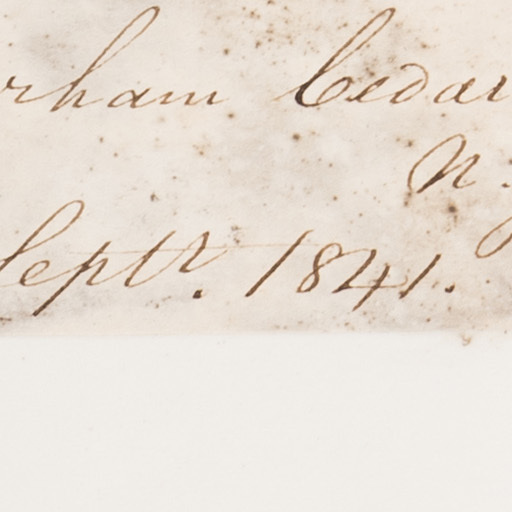 rham Cedar
N.
Septr. 1841.